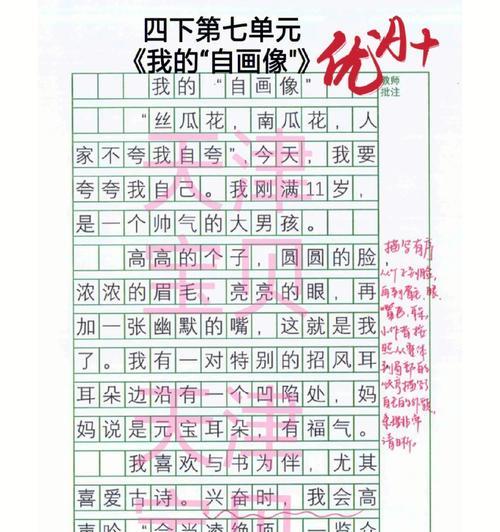 四下第七单元
《我的“自画像”》
优A+
教师
批注
我的“自画像”
“丝瓜花，南瓜花，人
家不夸我自夸”，今天，我要
夸夸我自己。我刚满11岁，
是一个帅气的大男孩。
高高的个子，圆圆的脸，
浓浓的眉毛，亮亮的眼，再
加一张幽默的嘴，这就是我
了。我有一对特别的招风耳
耳朵边沿有一个凹陷处，妈
妈说是元宝耳朵，有福气。
我喜欢与书为伴，尤其
喜爱古诗。兴奋时，我会高
声吟“会当凌绝顶，一览众
描写有序
从个子到脸，
再到眉毛、眼、
小作者按
照从整体
到局部的
自己的外貌，
条理非常
清晰。
天津
宝贝
天津
宝贝